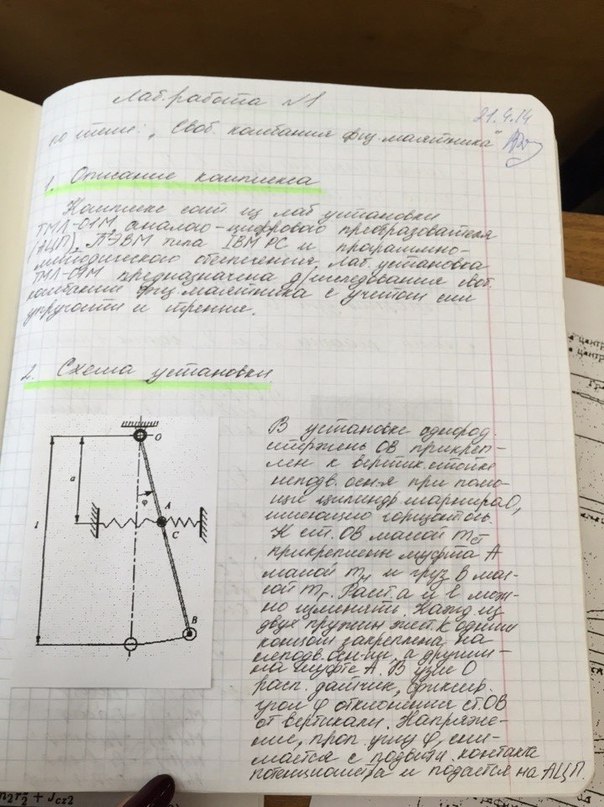 Лаб. работа №1
21.4.14
по теме: „Своб. колебания физ маятника"
1. Описание комплекса
Комплекс сост из лаб установки
ТМЛ-01М аналого-цифрового преобразователя
(АЦП), ПЭВМ типа IBM PC и программно-
методического обеспечения. Лаб установка
ТМЛ-01М предназначена д/исследования
колебаний физ маятника с учетом сил
упругости и трения.
2. Схема установки
В установке однород.
стержень ОВ прикреп-
лен к вертик. стойке
неподв. осн-я при помо-
щи цилиндр шарнира О,
имеющего горизонт ось
К ст. ОВ массой mст
прикреплены муфта А
массой mм и груз В мас-
сой mг. Расст. a и l мож-
но изменять. Кажд из
двух пружин жест. к одним
концом закреплена на
неподв. осн-ии, а другим-
на муфте А. В узле О
расп. датчик, фиксир.
угол φ отклонения ст. ОВ
от вертикали. Напряже-
ние, проп. углу φ, сни-
мается с подвижн. контакта
потенциометра и подается на АЦП.
O
a
l
φ
A
C
B
центр